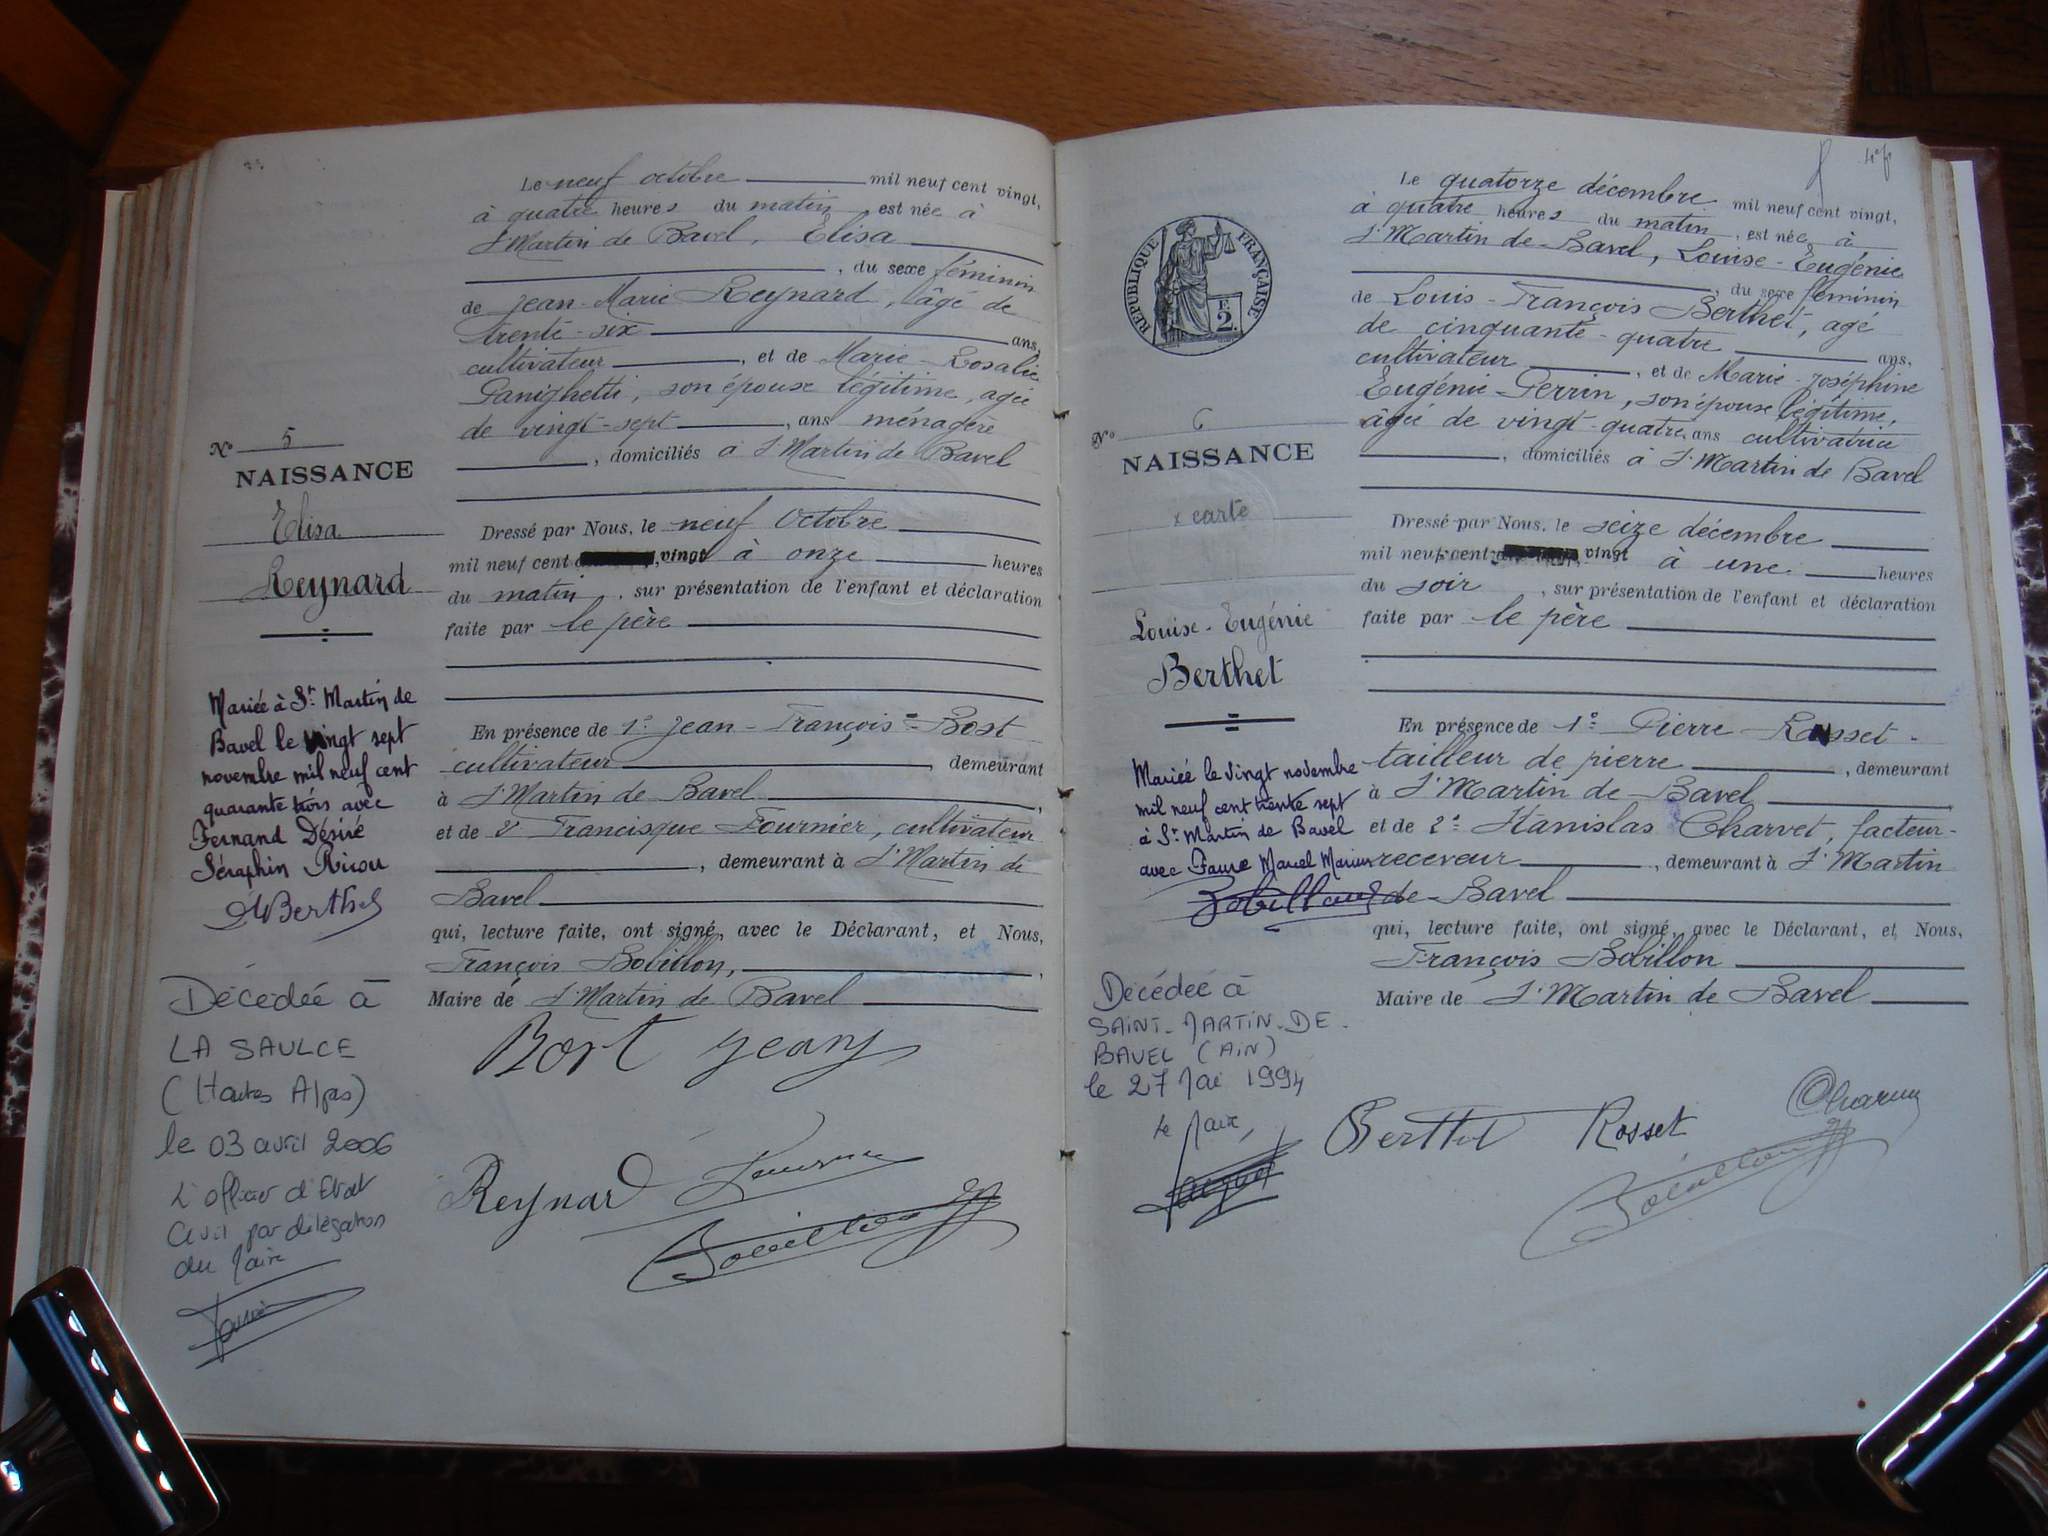 Le neuf octobre mil neuf cent vingt,
à quatre heures du matin, est née à
St Martin de Bavel, Elisa
, du sexe féminin
de Jean-Marie Reynard, âgé de
trente-six ans,
cultivateur, et de Marie-Rosalie
Panighetti, son épouse légitime, agée
de vingt-sept, ans ménagère
, domiciliés à St Martin de Bavel
No 5
NAISSANCE
Elisa
Reynard
Dressé par Nous, le neuf Octobre
mil neuf cent vingt à onze heures
du matin, sur présentation de l'enfant et déclaration
faite par le père
Mariée à St Martin de
Bavel le vingt sept
novembre mil neuf cent
quarante trois avec
Fernand Désiré
Séraphin
Berthet
En présence de 1° Jean-François Bost
cultivateur, demeurant
à St Martin de Bavel,
et de 2° Francisque Fournier, cultivateur
, demeurant à St Martin de
Bavel
qui, lecture faite, ont signé, avec le Déclarant, et Nous,
François Bobillon,
Maire de St Martin de Bavel
Décédée à
LA SAULCE
(Hautes Alpes)
le 03 avril 2006
L'officier d'Etat
Civil par délégation
du Maire
Bort Jeany
Reynard Fournier
Bobillon
Le quatorze décembre mil neuf cent vingt,
à quatre heures du matin, est née à
St Martin de Bavel, Louise-Eugénie
, du sexe féminin
de Louis-François Berthet, agé
de cinquante-quatre ans,
cultivateur, et de Marie-Joséphine
Eugénie Perrin, son épouse légitime,
âgée de vingt-quatre ans cultivatrice
, domiciliés à St Martin de Bavel
RÉPUBLIQUE FRANÇAISE
F.
2.
No 6
NAISSANCE
x carte
Louise-Eugénie
Berthet
Dressé par Nous, le seize décembre
mil neuf cent vingt à une heures
du soir, sur présentation de l'enfant et déclaration
faite par le père
Mariée le vingt novembre
mil neuf cent trente sept
à St Martin de Bavel
avec Faure Marcel Marius
Bobillon
En présence de 1° Pierre Rosset
tailleur de pierre, demeurant
à St Martin de Bavel
et de 2° Stanislas Charvet, facteur-
receveur, demeurant à St Martin
de Bavel
qui, lecture faite, ont signé, avec le Déclarant, et Nous,
François Bobillon
Maire de St Martin de Bavel
Décédée à
SAINT-MARTIN-DE-
BAVEL (AIN)
le 27 Mai 1994
Le Maire,
Berthet Rosset Charvet
Bobillon